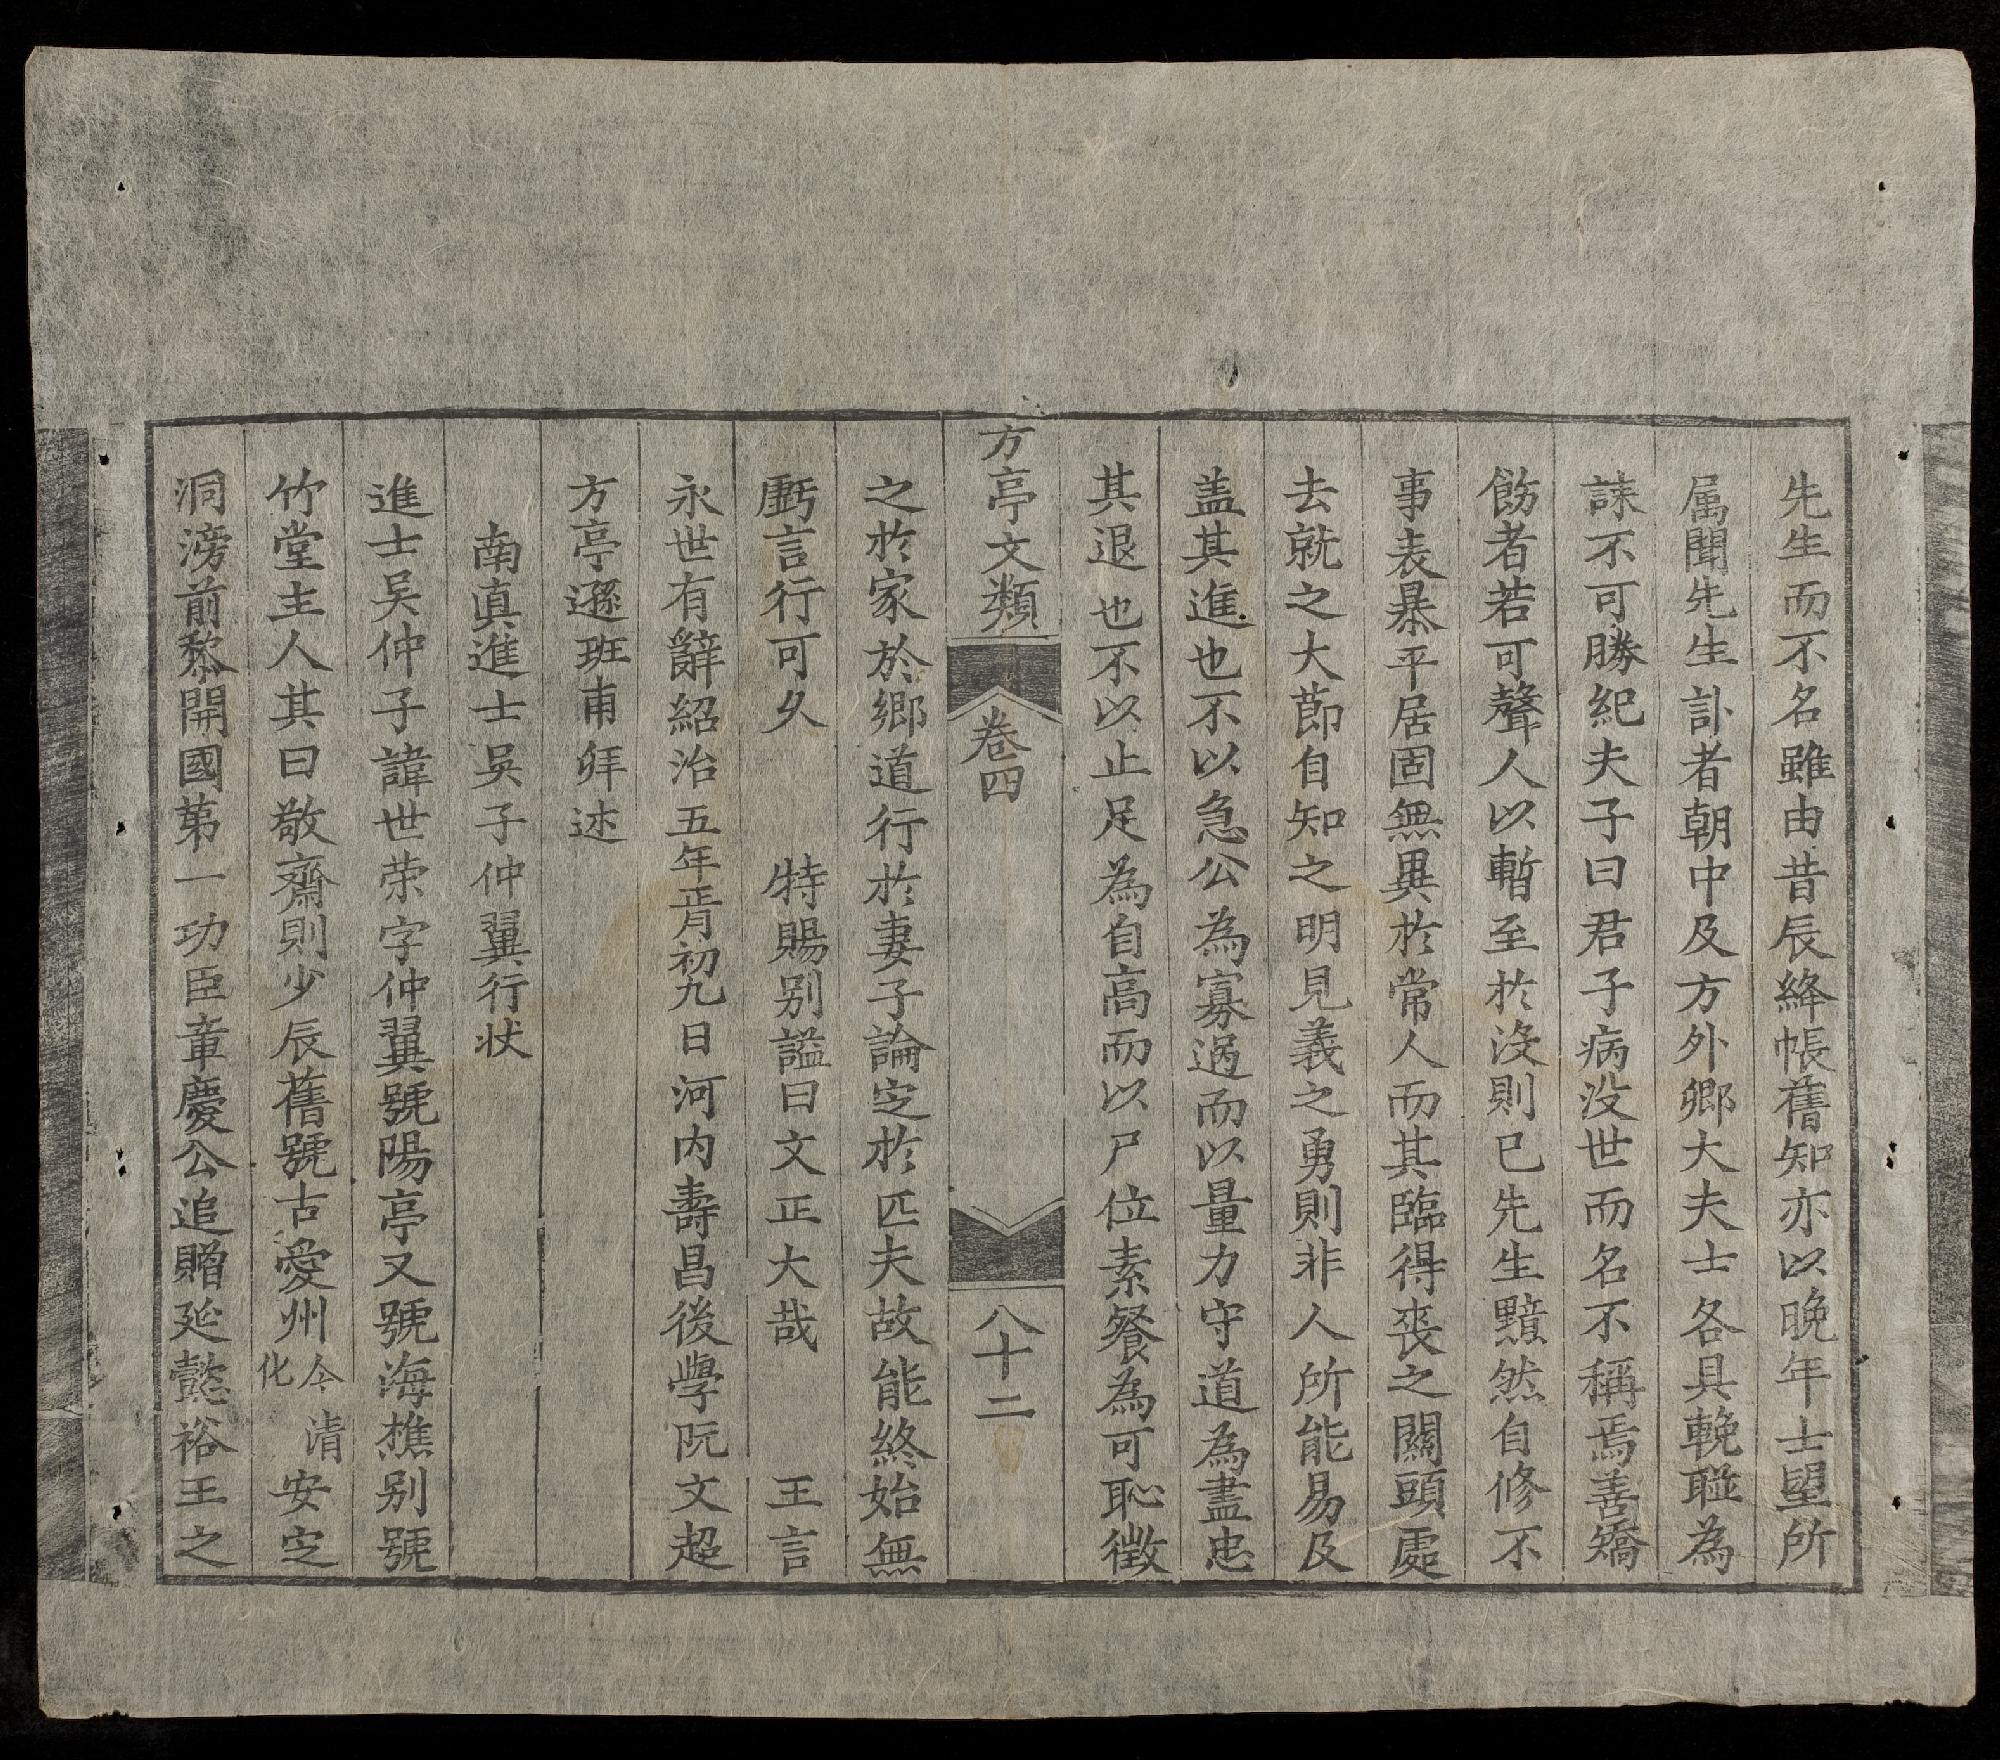 先生而不名雖由昔辰絳帳舊知亦以晚年士望所
属聞先生訃者朝中及方外鄉大夫士各具輓聯為
誄不可勝紀夫子曰君子病没世而名不稱焉善矯
飭者若可聾人以暫至於沒則已先生黯然自修不
事表暴平居固無異於常人而其臨得喪之關頭處
去就之大節自知之明見義之勇則非人所能易及
盖其進也不以急公為寡過而以量力守道為盡忠
其退也不以止足為自高而以尸位素餐為可恥徵
方亭文類
卷四
八十二
之於家於鄉道行於妻子論定於匹夫故能終始無
虧言行可久 特賜别謚曰文正大哉 王言
永世有辭紹治五年胥初九日河内壽昌後學阮文超
方亭遜班甫拜述
南真進士吳子仲翼行状
進士吳仲子諱世荣字仲翼號陽亭又號海樵别號
竹堂主人其曰敬齋則少辰舊號古愛州今清化安定
洞滂前黎開國第一功臣章慶公追贈延懿裕王之